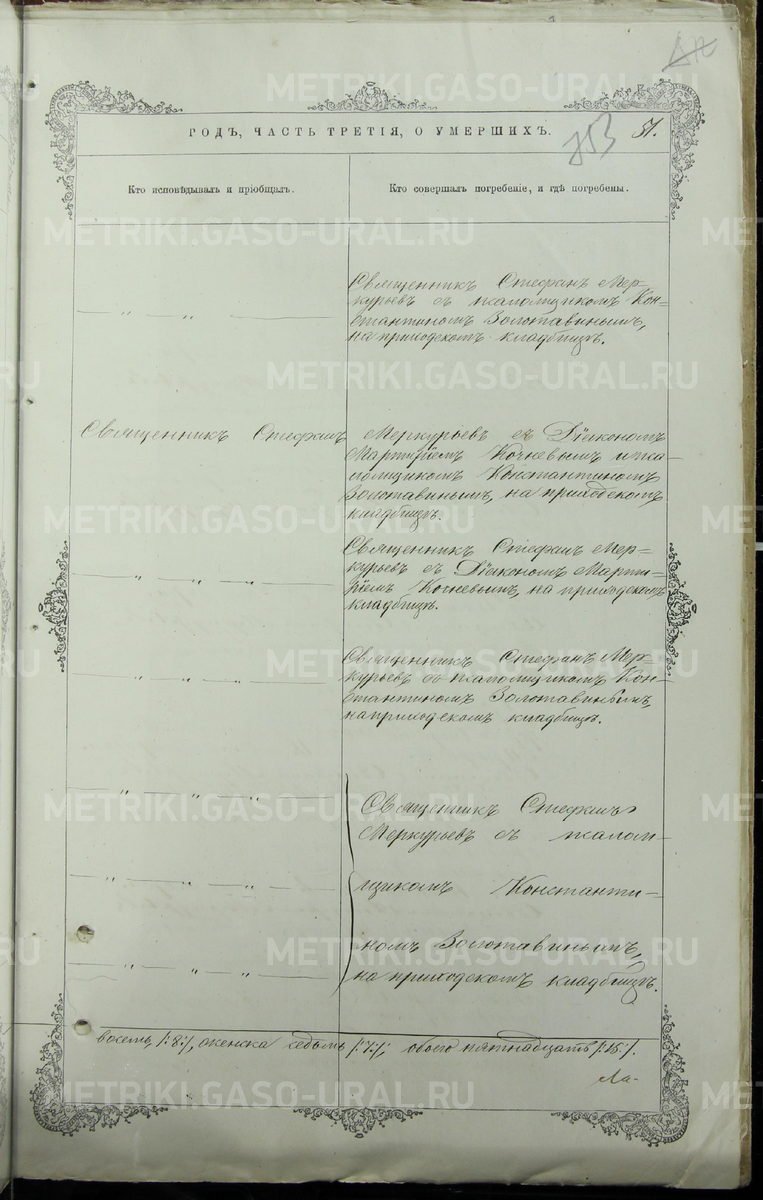 ГОДЪ, ЧАСТЬ ТРЕТІЯ, О УМЕРШИХЪ.
51.
753
Кто исповѣдывалъ и пріобщалъ.
Кто совершалъ погребеніе, и гдѣ погребены.
Священникъ Стефанъ Мер-
курьевъ съ псаломщикомъ Кон-
стантиномъ Золотавинымъ,
на приходскомъ кладбищѣ.
Священникъ Стефанъ Меркурьевъ съ Діакономъ
Мартиріемъ Кочневымъ и пса-
ломщикомъ Константиномъ
Золотавинымъ, на приходскомъ
кладбищѣ.
Священникъ Стефанъ Мер-
курьевъ съ Діакономъ Марти-
ріемъ Кочневымъ, на приходскомъ
кладбищѣ.
Священникъ Стефанъ Мер-
курьевъ съ псаломщикомъ Кон-
стантиномъ Золотавинымъ,
на приходскомъ кладбищѣ.
Священникъ Стефанъ
Меркурьевъ съ псалом-
щикомъ Константи-
номъ Золотавинымъ,
на приходскомъ кладбищѣ.
восемь /:8:/, женска седьмь /:7:/, обоего пятнадцать /:15:/.
METRIKI.GASO-URAL.RU